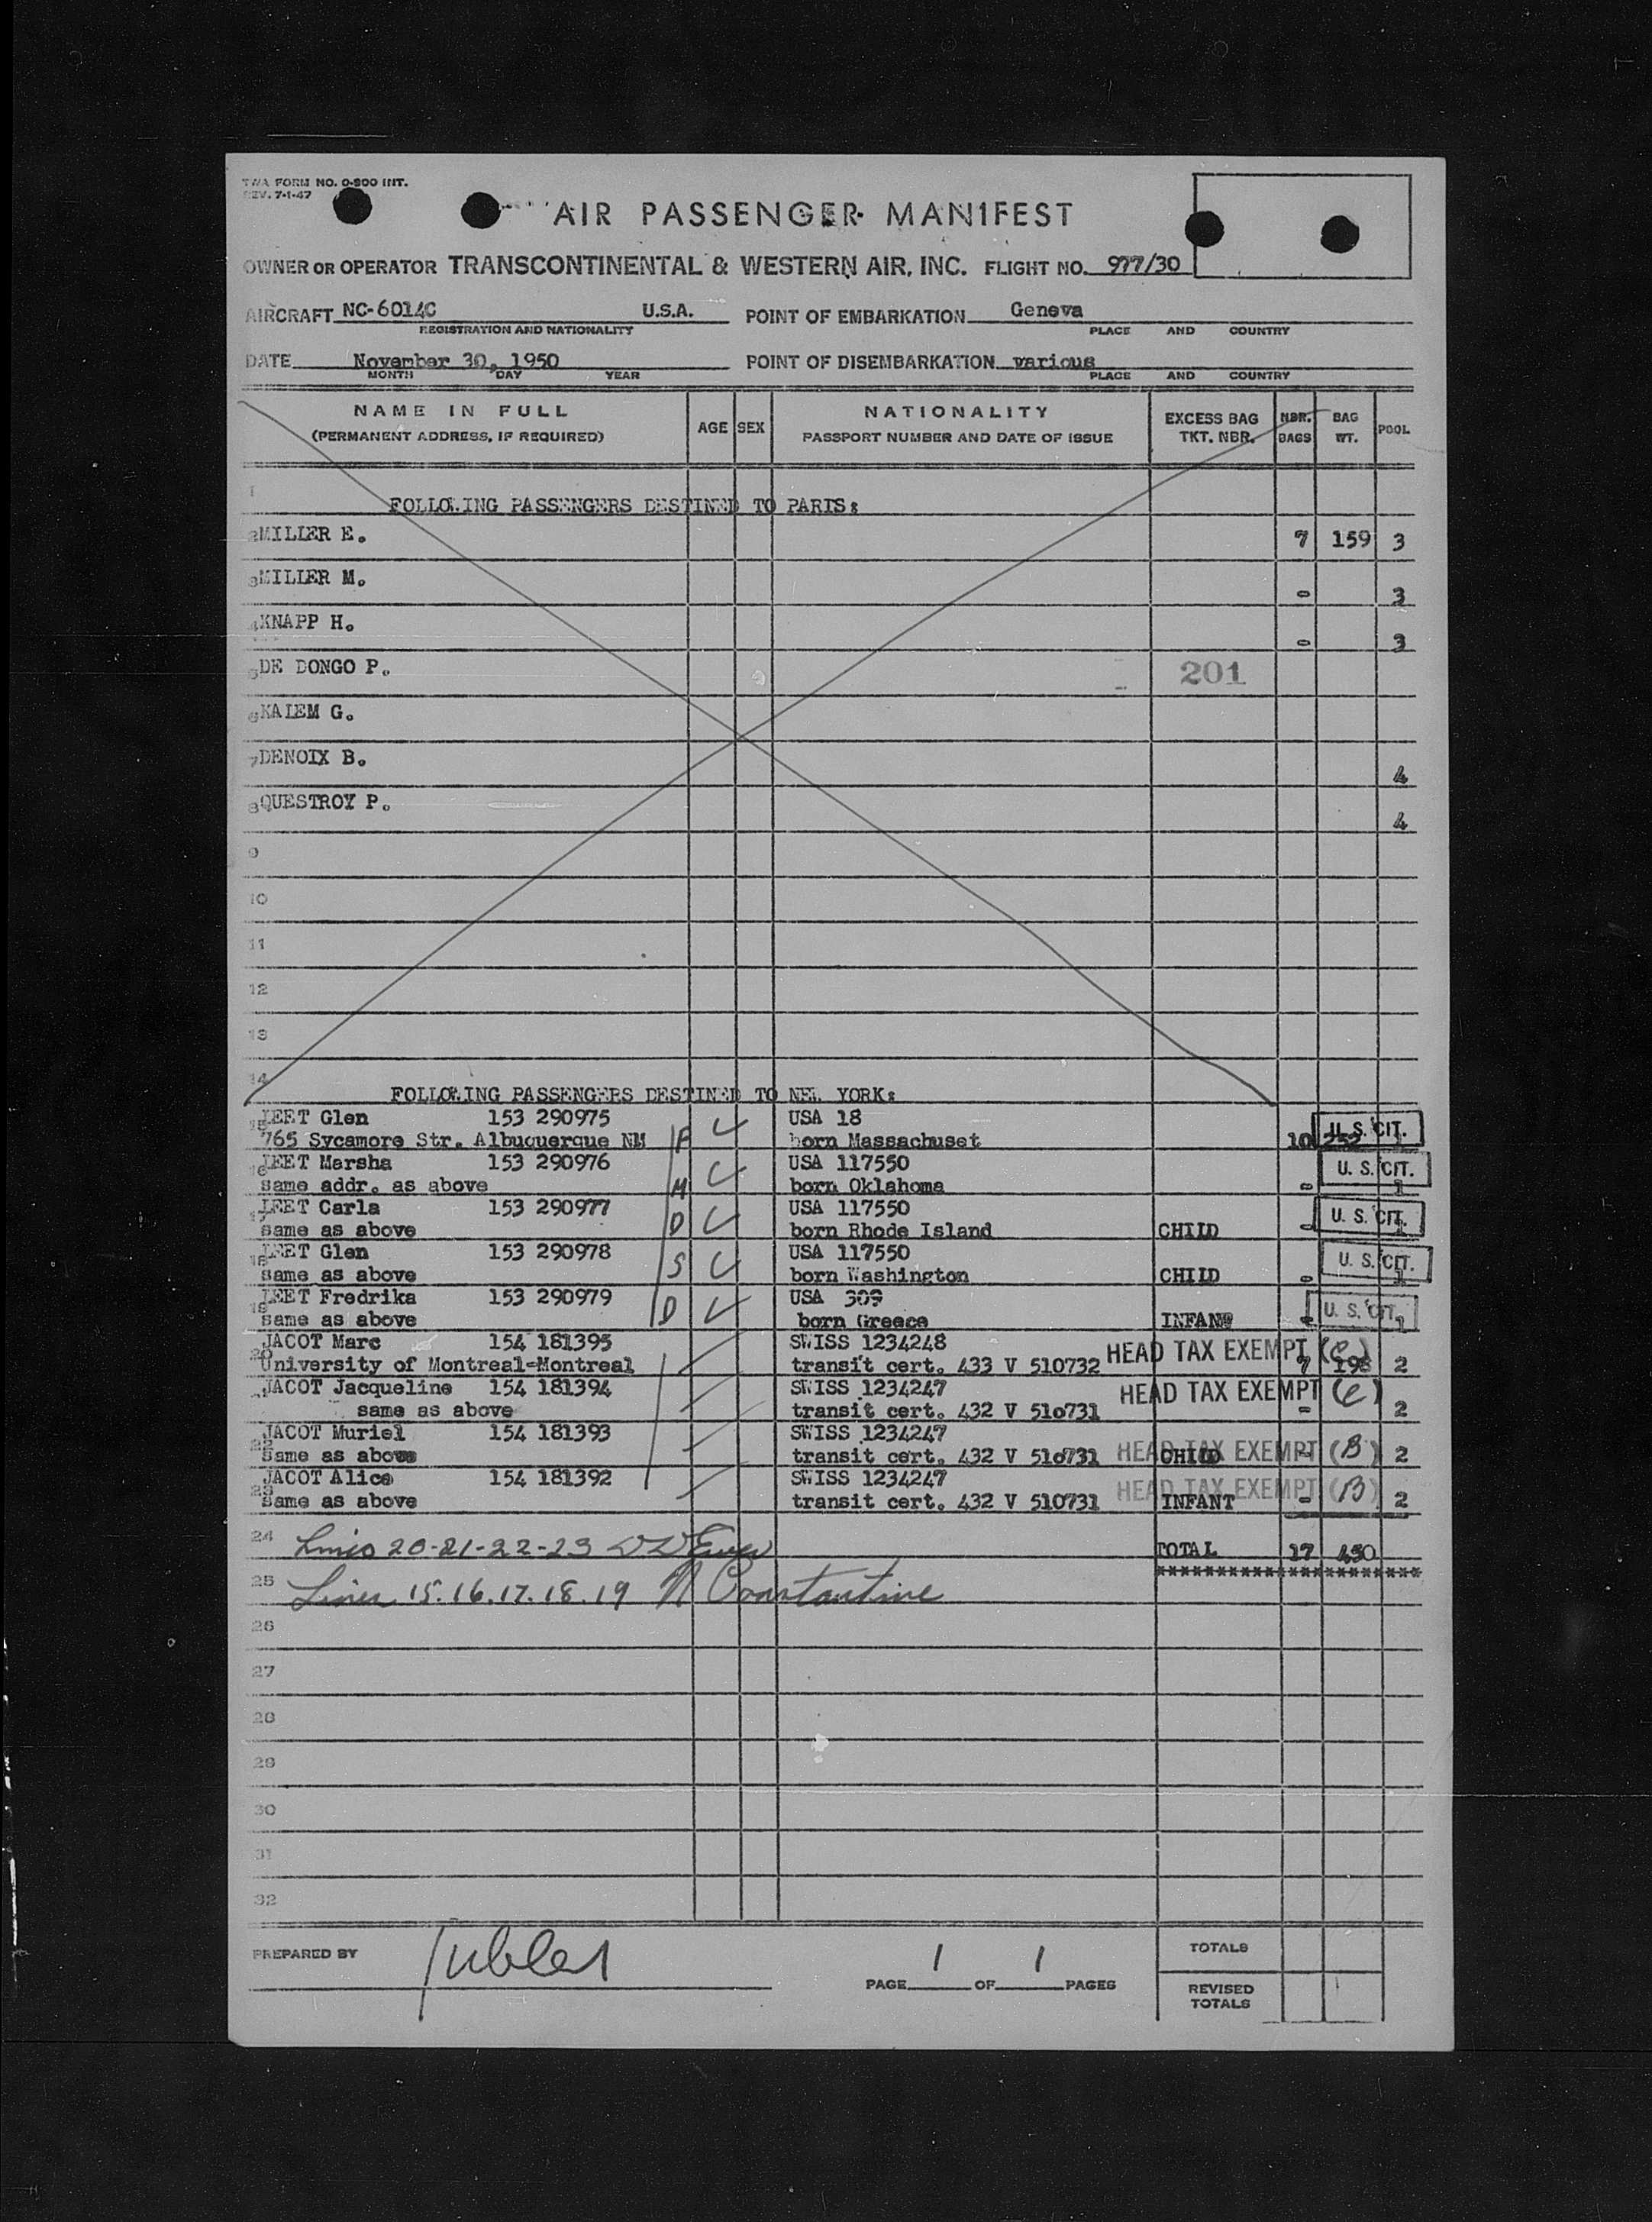 TWA FORM NO. O-800 INT.
REV. 7-1-47
AIR PASSENGER MANIFEST
OWNER OR OPERATOR TRANSCONTINENTAL & WESTERN AIR, INC. FLIGHT NO. 977/30
AIRCRAFT NC-6014C U.S.A. POINT OF EMBARKATION Geneva
REGISTRATION AND NATIONALITY PLACE AND COUNTRY
DATE November 30, 1950 POINT OF DISEMBARKATION various
MONTH DAY YEAR PLACE AND COUNTRY
NAME IN FULL AGE SEX NATIONALITY EXCESS BAG NBR. BAG POOL
(PERMANENT ADDRESS, IF REQUIRED) PASSPORT NUMBER AND DATE OF ISSUE TKT. NBR. BAGS WT.
1 FOLLOWING PASSENGERS DESTINED TO PARIS:
2 MILLER E. 7 159 3
3 MILLER M. - 3
4 KNAPP H. - 3
5 DE DONGO P. 201
6 KALEM G.
7 DENOIX B. 4
8 QUESTROY P. 4
9
10
11
12
13
14 FOLLOWING PASSENGERS DESTINED TO NEW YORK:
15 LEET Glen 153 290975 USA 18 U. S. CIT.
765 Sycamore Str. Albuquerque NM F born Massachuset 10 252 1
16 LEET Marsha 153 290976 USA 117550 U. S. CIT.
same addr. as above M born Oklahoma - 1
17 LEET Carla 153 290977 USA 117550 U. S. CIT.
same as above D born Rhode Island CHILD - 1
18 LEET Glen 153 290978 USA 117550 U. S. CIT.
same as above S born Washington CHILD - 1
19 LEET Fredrika 153 290979 USA 309 U. S. CIT.
same as above D born Greece INFANT - 1
20 JACOT Marc 154 181395 SWISS 1234248 HEAD TAX EXEMPT (e)
University of Montreal-Montreal transit cert. 433 V 510732 7 198 2
JACOT Jacqueline 154 181394 SWISS 1234247 HEAD TAX EXEMPT (e)
same as above transit cert. 432 V 51o731 - 2
22 JACOT Muriel 154 181393 SWISS 1234247 HEAD TAX EXEMPT (B)
same as above transit cert. 432 V 51o731 CHILD - 2
23 JACOT Alice 154 181392 SWISS 1234247 HEAD TAX EXEMPT (B)
same as above transit cert. 432 V 510731 INFANT - 2
24 Lines 20-21-22-23 TOTAL 17 450
25 Lines 15.16.17.18.19 N Constantine *********************
26
27
28
29
30
31
32
PREPARED BY PAGE 1 OF 1 PAGES TOTALS
REVISED TOTALS